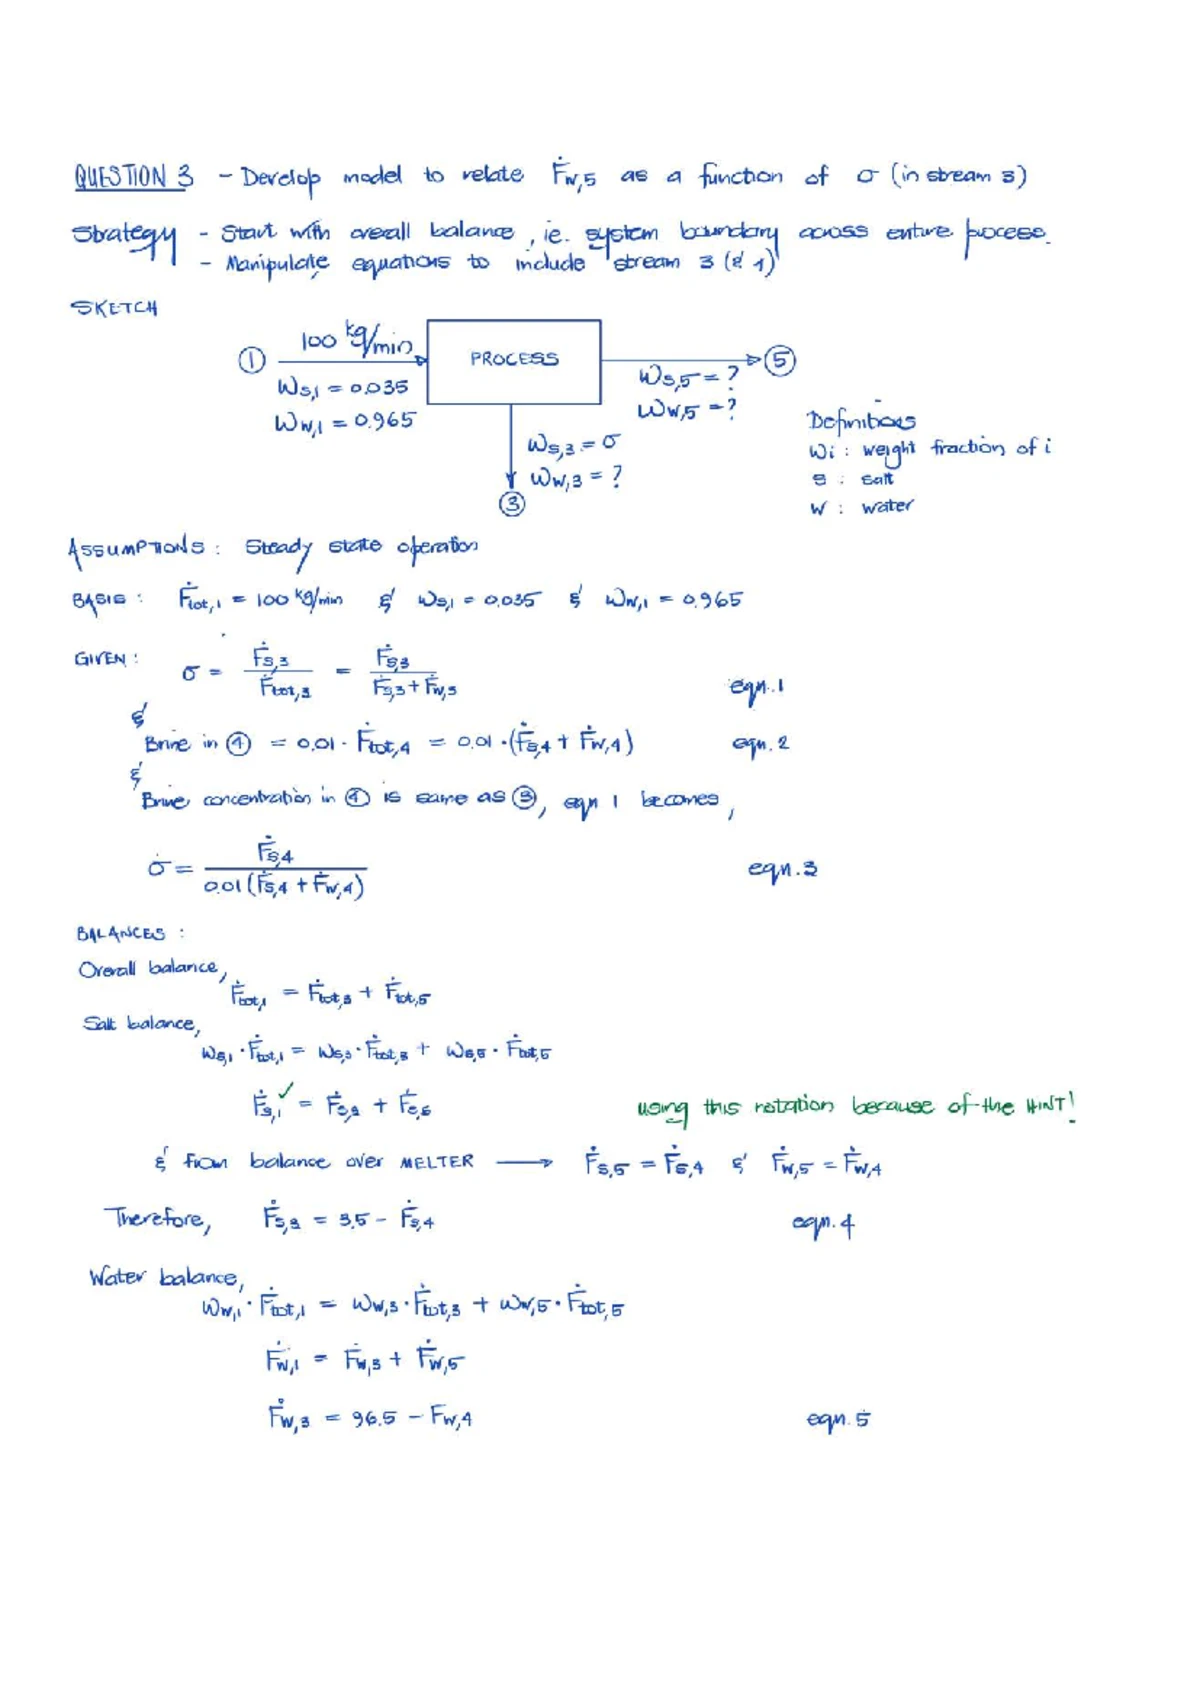 QUESTION 3 - Develop model to relate Ḟw,5 as a function of σ (in stream 3)
Strategy - Start with overall balance, ie. system boundary across entire process.
- Manipulate equations to include stream 3 (& 4)
SKETCH
① 100 kg/min PROCESS ⑤
ws,1 = 0.035
ww,1 = 0.965
ws,5 = ?
ww,5 = ?
ws,3 = σ
ww,3 = ?
③
Definitions
wi : weight fraction of i
s : salt
w : water
ASSUMPTIONS : Steady state operation
BASIS : Ḟtot,1 = 100 kg/min & ws,1 = 0.035 & ww,1 = 0.965
GIVEN : σ = Ḟs,3 / Ḟtot,3 = Ḟs,3 / (Ḟs,3 + Ḟw,3) eqn. 1
&
Brine in ④ = 0.01 · Ḟtot,4 = 0.01 · (Ḟs,4 + Ḟw,4) eqn. 2
&
Brine concentration in ④ is same as ③, eqn 1 becomes,
σ = Ḟs,4 / 0.01 (Ḟs,4 + Ḟw,4) eqn. 3
BALANCES :
Overall balance,
Ḟtot,1 = Ḟtot,3 + Ḟtot,5
Salt balance,
ws,1 · Ḟtot,1 = ws,3 · Ḟtot,3 + ws,5 · Ḟtot,5
Ḟs,1 ✓ = Ḟs,3 + Ḟs,5 using this notation because of the HINT!
& from balance over MELTER → Ḟs,5 = Ḟs,4 & Ḟw,5 = Ḟw,4
Therefore, Ḟs,3 = 3.5 - Ḟs,4 eqn. 4
Water balance,
ww,1 · Ḟtot,1 = ww,3 · Ḟtot,3 + ww,5 · Ḟtot,5
Ḟw,1 = Ḟw,3 + Ḟw,5
Ḟw,3 = 96.5 - Fw,4 eqn. 5